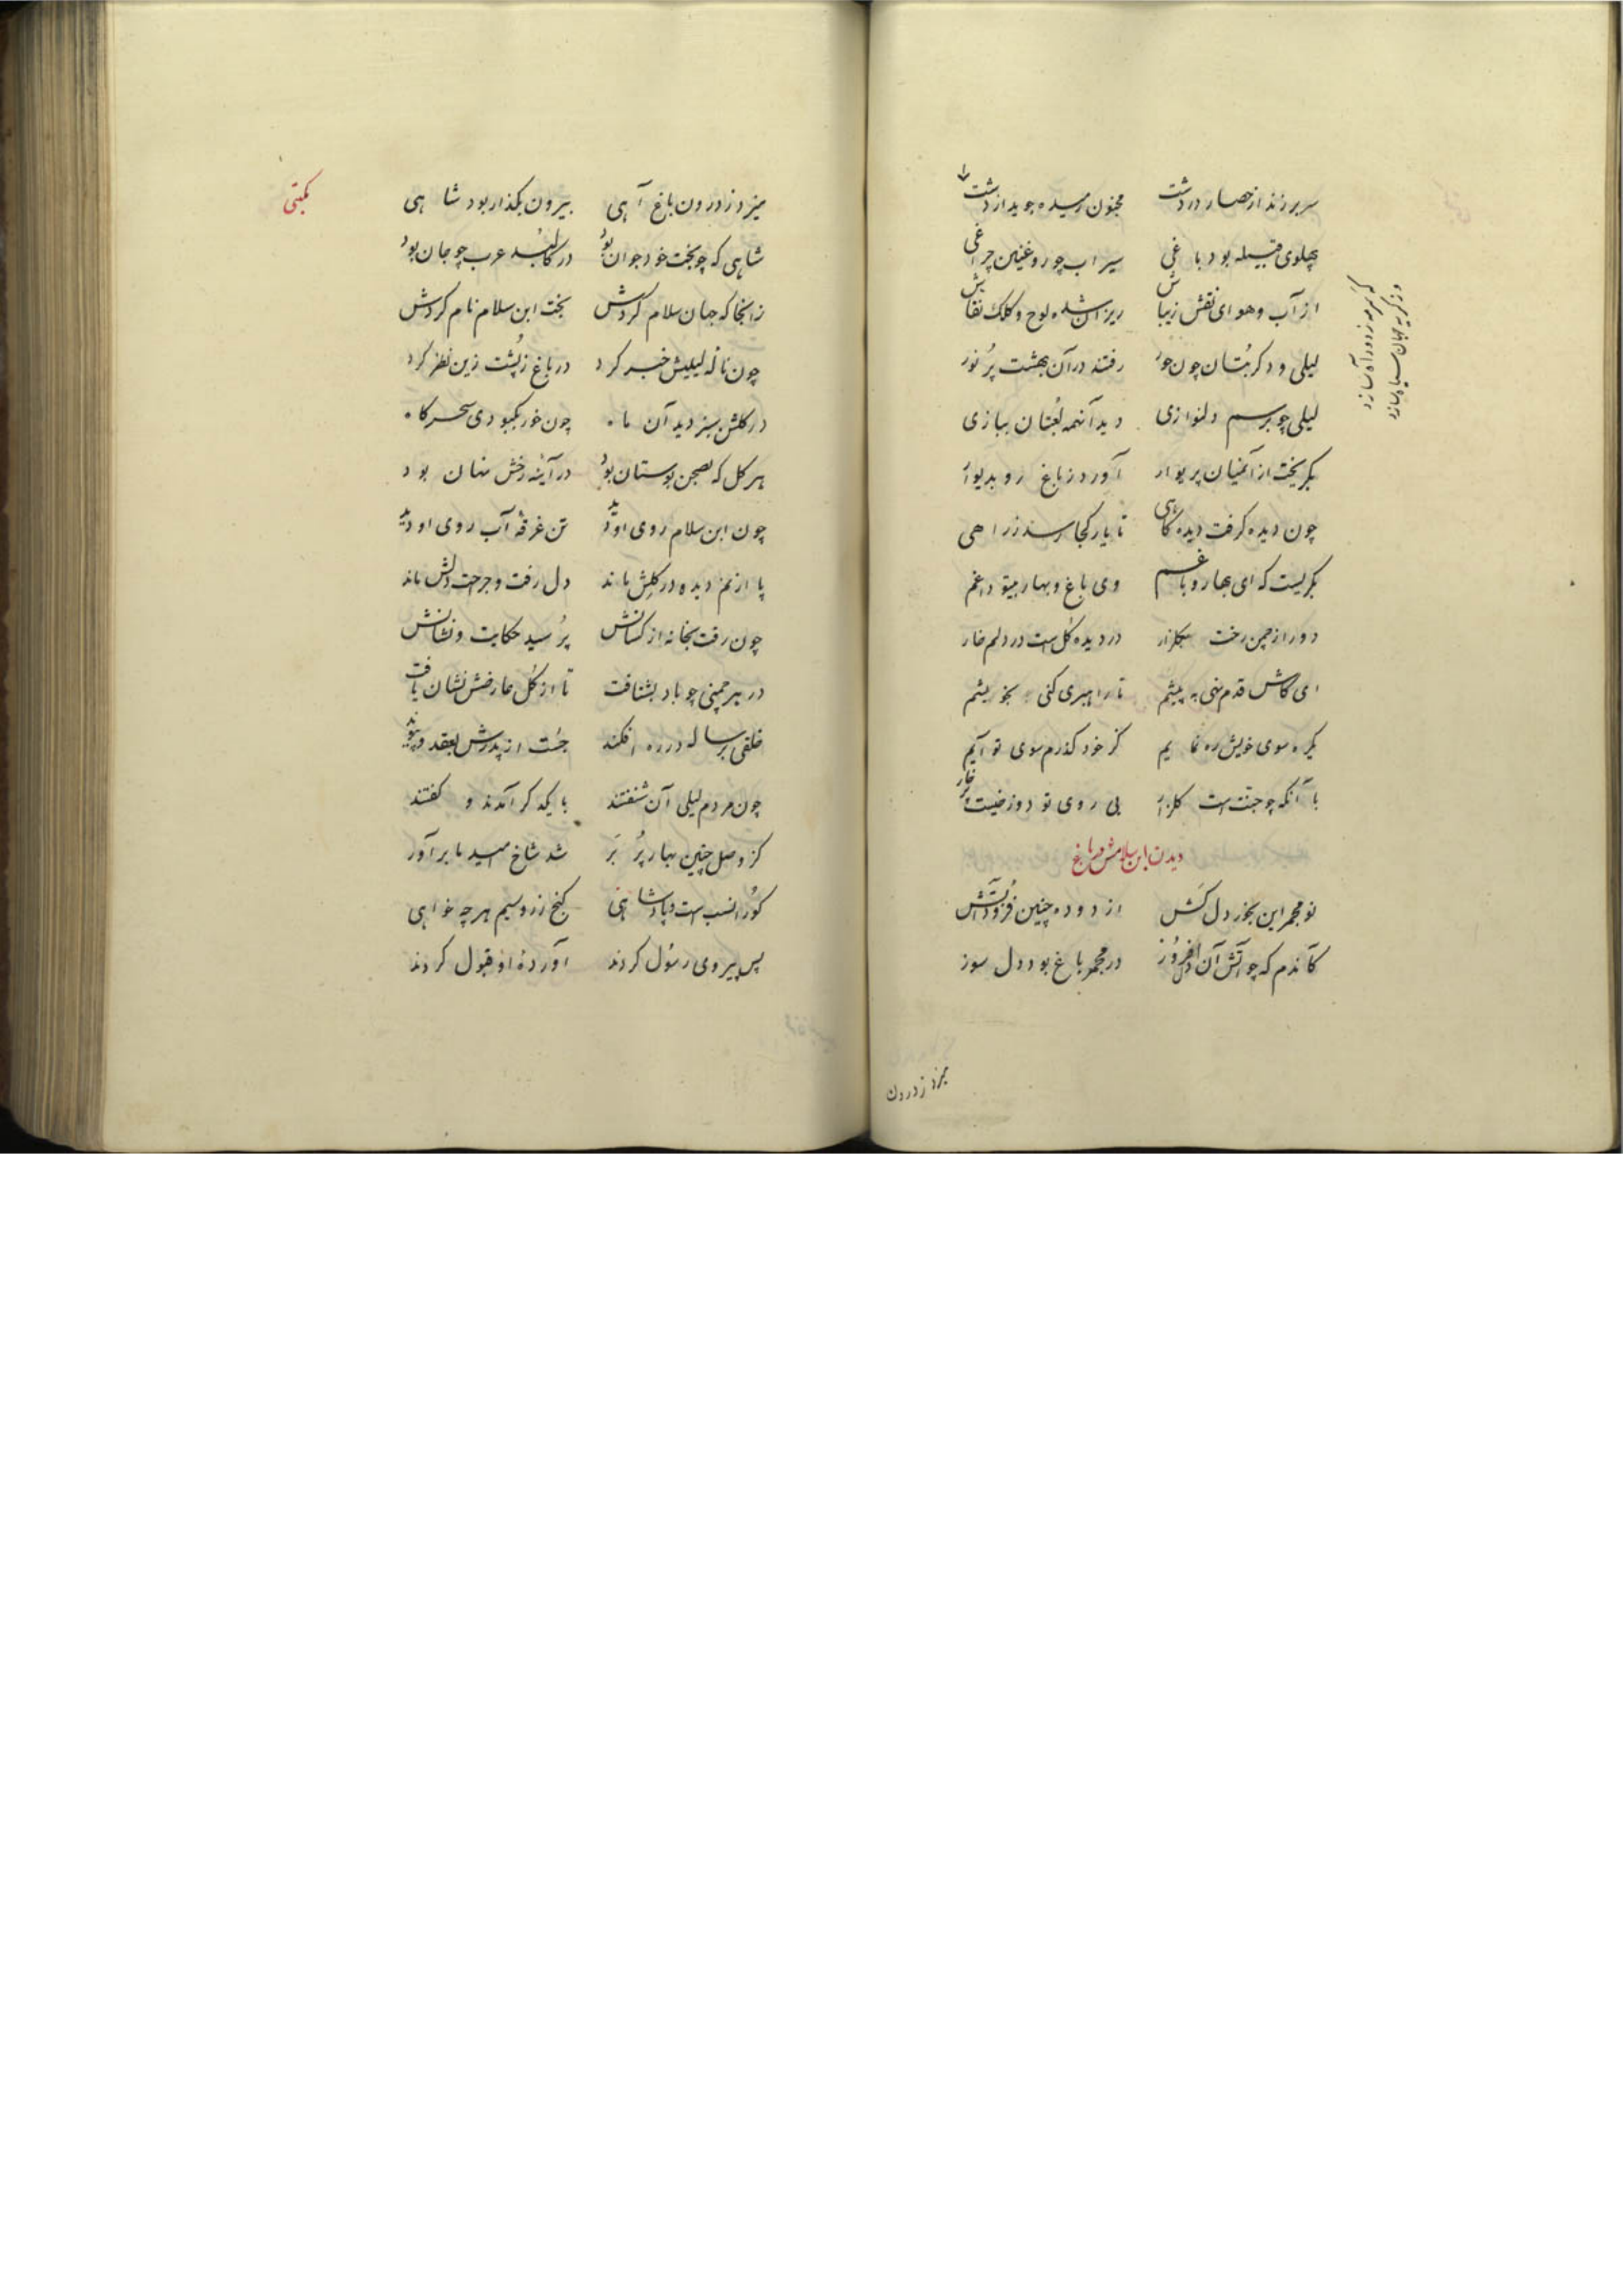 سر برزند از حصار در دشت مجنون رمیده جوید از دشت
پهلوی قبیله بود باغی سیراب چو روغنین چراغی
از آب و هوای نقش زیباش ریزان شده لوح و کلک نقاش
لیلی و دکر بتان چون حور رفتند در آن بهشت پر نور
لیلی چو برسم دلنوازی دید آنهمه لعبتان ببازی
بکریخت از آن میان پریوار آورد ز باغ رو بدیوار
چون دیده کرفت دیده کاهی تا یار کجا رسد ز راهی
بکریست که ای بهار و باغم وی باغ و بهار بیتو داغم
دور از چمن رخت بکلزار در دیده کل است در دلم خار
ای کاش قدم نهی به پیشم تا راهبری کنی بخویشم
یکره سوی خویش ره نمایم کز خود کذرم سوی تو آیم
با آنکه چو جنت است کلزار بی روی تو دوزخیست پر خار
دیدن ابن سلامش در باغ
نو مجمر این بخور دل کش از دوده چنین فزودش آتش
کآندم که چو آتش آن دل افروز در مجمر باغ بود دل سوز
که سرمه ز دود آه سازد
وز کریه جهان سیاه سازد
میزد ز درون
میزد ز درون باغ آهی بیرون بکذار بود شاهی
شاهی که چو بخت خود جوان بود در کالبد عرب چو جان بود
زانجا که جهان سلام کردش بخت ابن سلام نام کردش
چون ناله لیلیش خبر کرد در باغ ز پشت زین نظر کرد
در کلشن سبز دید آن ماه چون خور بکبودی سحرکاه
هر کل که بصحن بوستان بود در آینه رخش نهان بود
چون ابن سلام روی او دید تن غرقه آب روی او دید
پا از نم دیده در کلش ماند دل رفت و جرحت دلش ماند
چون رفت بخانه از کسانش پرسید حکایت و نشانش
در هر چمنی چو باد بشتافت تا از کل عارضش نشان یافت
خلقی برساله در ره افکند جست از پدرش بعقد و پیوند
چون مردم لیلی آن شنفتند با یکدکر آمدند و کفتند
کز وصل چنین بهار پر بر شد شاخ امید ما برآور
کورا نسب است و پادشاهی کنج زر و سیم هر چه خواهی
پس پیروی رسول کردند آورده او قبول کردند